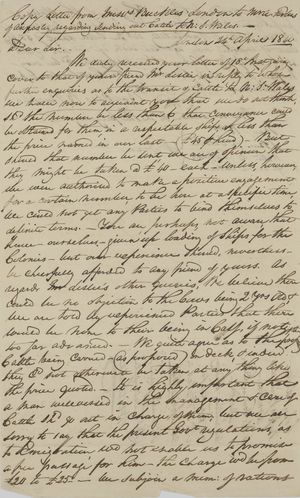 Copy Letter from Messrs Buckles London to
of regarding sending out Cattle to N. S. Wales
London 24th April 18
Dear Sir,
We duly received your letter of 18th
cover to that of your friend Mr Leslie in reply to whose
further enquiries as to the transit of Cattle to N. S. Wales
we have now to acquaint you that we do not think
if the number be less than 6 that conveyance could
be obtained for them in a respectable ship for less than
the price named in our last £45 p head But
should that number be sent we are of opinion that
they might be taken @ £40 each — Unless however
we were authorized to make a positive engagement
for a certain number to be here at a specified time
we could not get any Parties to bind themselves to
definite terms. — You are perhaps not aware that
have ourselves given up loading of ships for the
Colonies — but our experience should, nevertheless
be cheerfully afforded to any friend of yours. As
regards Mr Leslie's other Queries, We believe there
could be no objection to the Cows being 2 yrs old
we are told by experienced Parties that there
would be none to their being in Calf, if not
too far advanced — We quite agree as to the
Cattle being carried (as proposed) on deck, & indeed
they cd not otherwise be taken at any thing like
the price quoted. — It is highly important that
a Man well versed in the Management & Care of
Cattle shd go out in Charge of them, but we are
sorry to say that the present Govt regulations, as
to Emigration, wd not enable us to promise
a free passage for him the Charge wd be from
£20 to £25 — We subjoin a Mem: of Rations